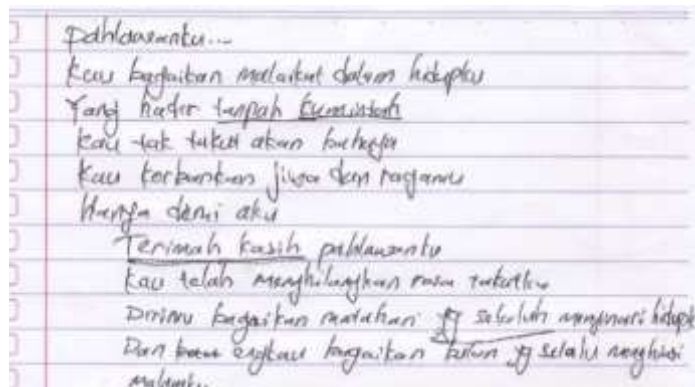 Pahlawanku...
Kau bagaikan malaikat dalam hidupku
Yang hadir tanpah kumintah
Kau tak takut akan bahaya
Kau korbankan jiwa dan ragamu
Hanya demi aku
Terimah kasih pahlawanku
Kau telah menghilangkan rasa takutku
Dirimu bagaikan matahari yg selaluh menyinari hidupku
Dan engkau bagaikan bulan yg selalu menghiasi
malamku